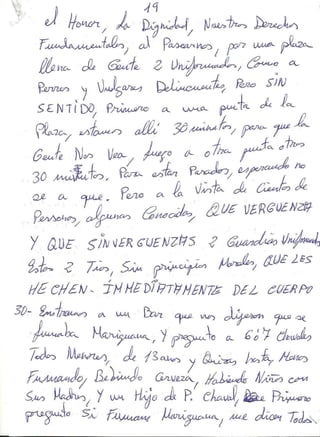 19
el Honor, La Dignidad, Nuestros Derechos
Fundamentales, al Pasearnos, por una plaza
llena de Gente 2 Uniformados, Como a
Perros y Vulgares Delincuentes, Pero SIN
SENTIDO, Primero a una punta de la
Plaza, estamos alli 30 minutos, para que la
Gente Nos Vea, luego a otra punta otros
30 minutos. Para estar Parados, esperando no
se a que. Pero a la Vista de Cientos de
Personas, algunas Conocidas, QUE VERGUENZA
Y QUE SINVERGUENZAS 2 Guardias Uniformados
Estos 2 Tios, Sin principios Morales, QUE LES
HECHEN - IMMEDIATAMENTE DEL CUERPO
30- Entramos a un Bar que nos dijeron que se
fumaba Mariguana, Y pregunto a 6ó7 Chavales
Todos Menores, de 13 anos y Quizas hasta Menos
Fumando, Bebiendo Cerveza, Habiendo Niños con
Sus Madres, y un Hijo de P. Chaval, Primero
pregunto Si Fuman Mariguana, me dicen Todos